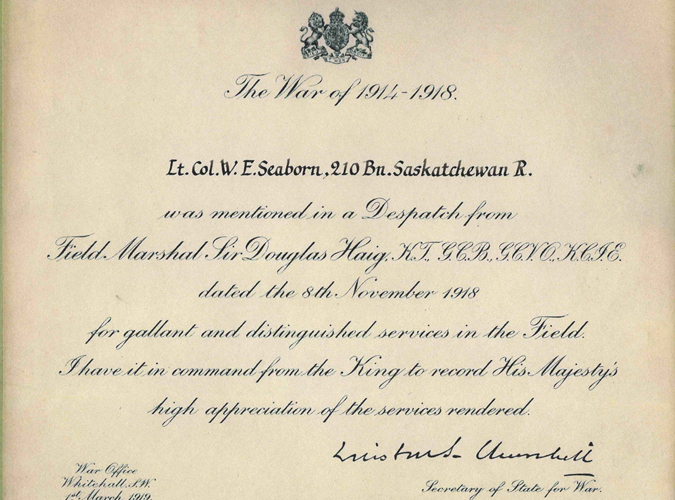 The War of 1914-1918.
Lt. Col. W. E. Seaborn, 210 Bn. Saskatchewan R.
was mentioned in a Despatch from
Field Marshal Sir Douglas Haig, K.T., G.C.B., G.C.V.O., K.C.I.E.
dated the 8th November 1918
for gallant and distinguished services in the Field.
I have it in command from the King to record His Majesty's
high appreciation of the services rendered.
Winston S. Churchill
War Office
Whitehall, S.W.
1st March 1919.
Secretary of State for War.